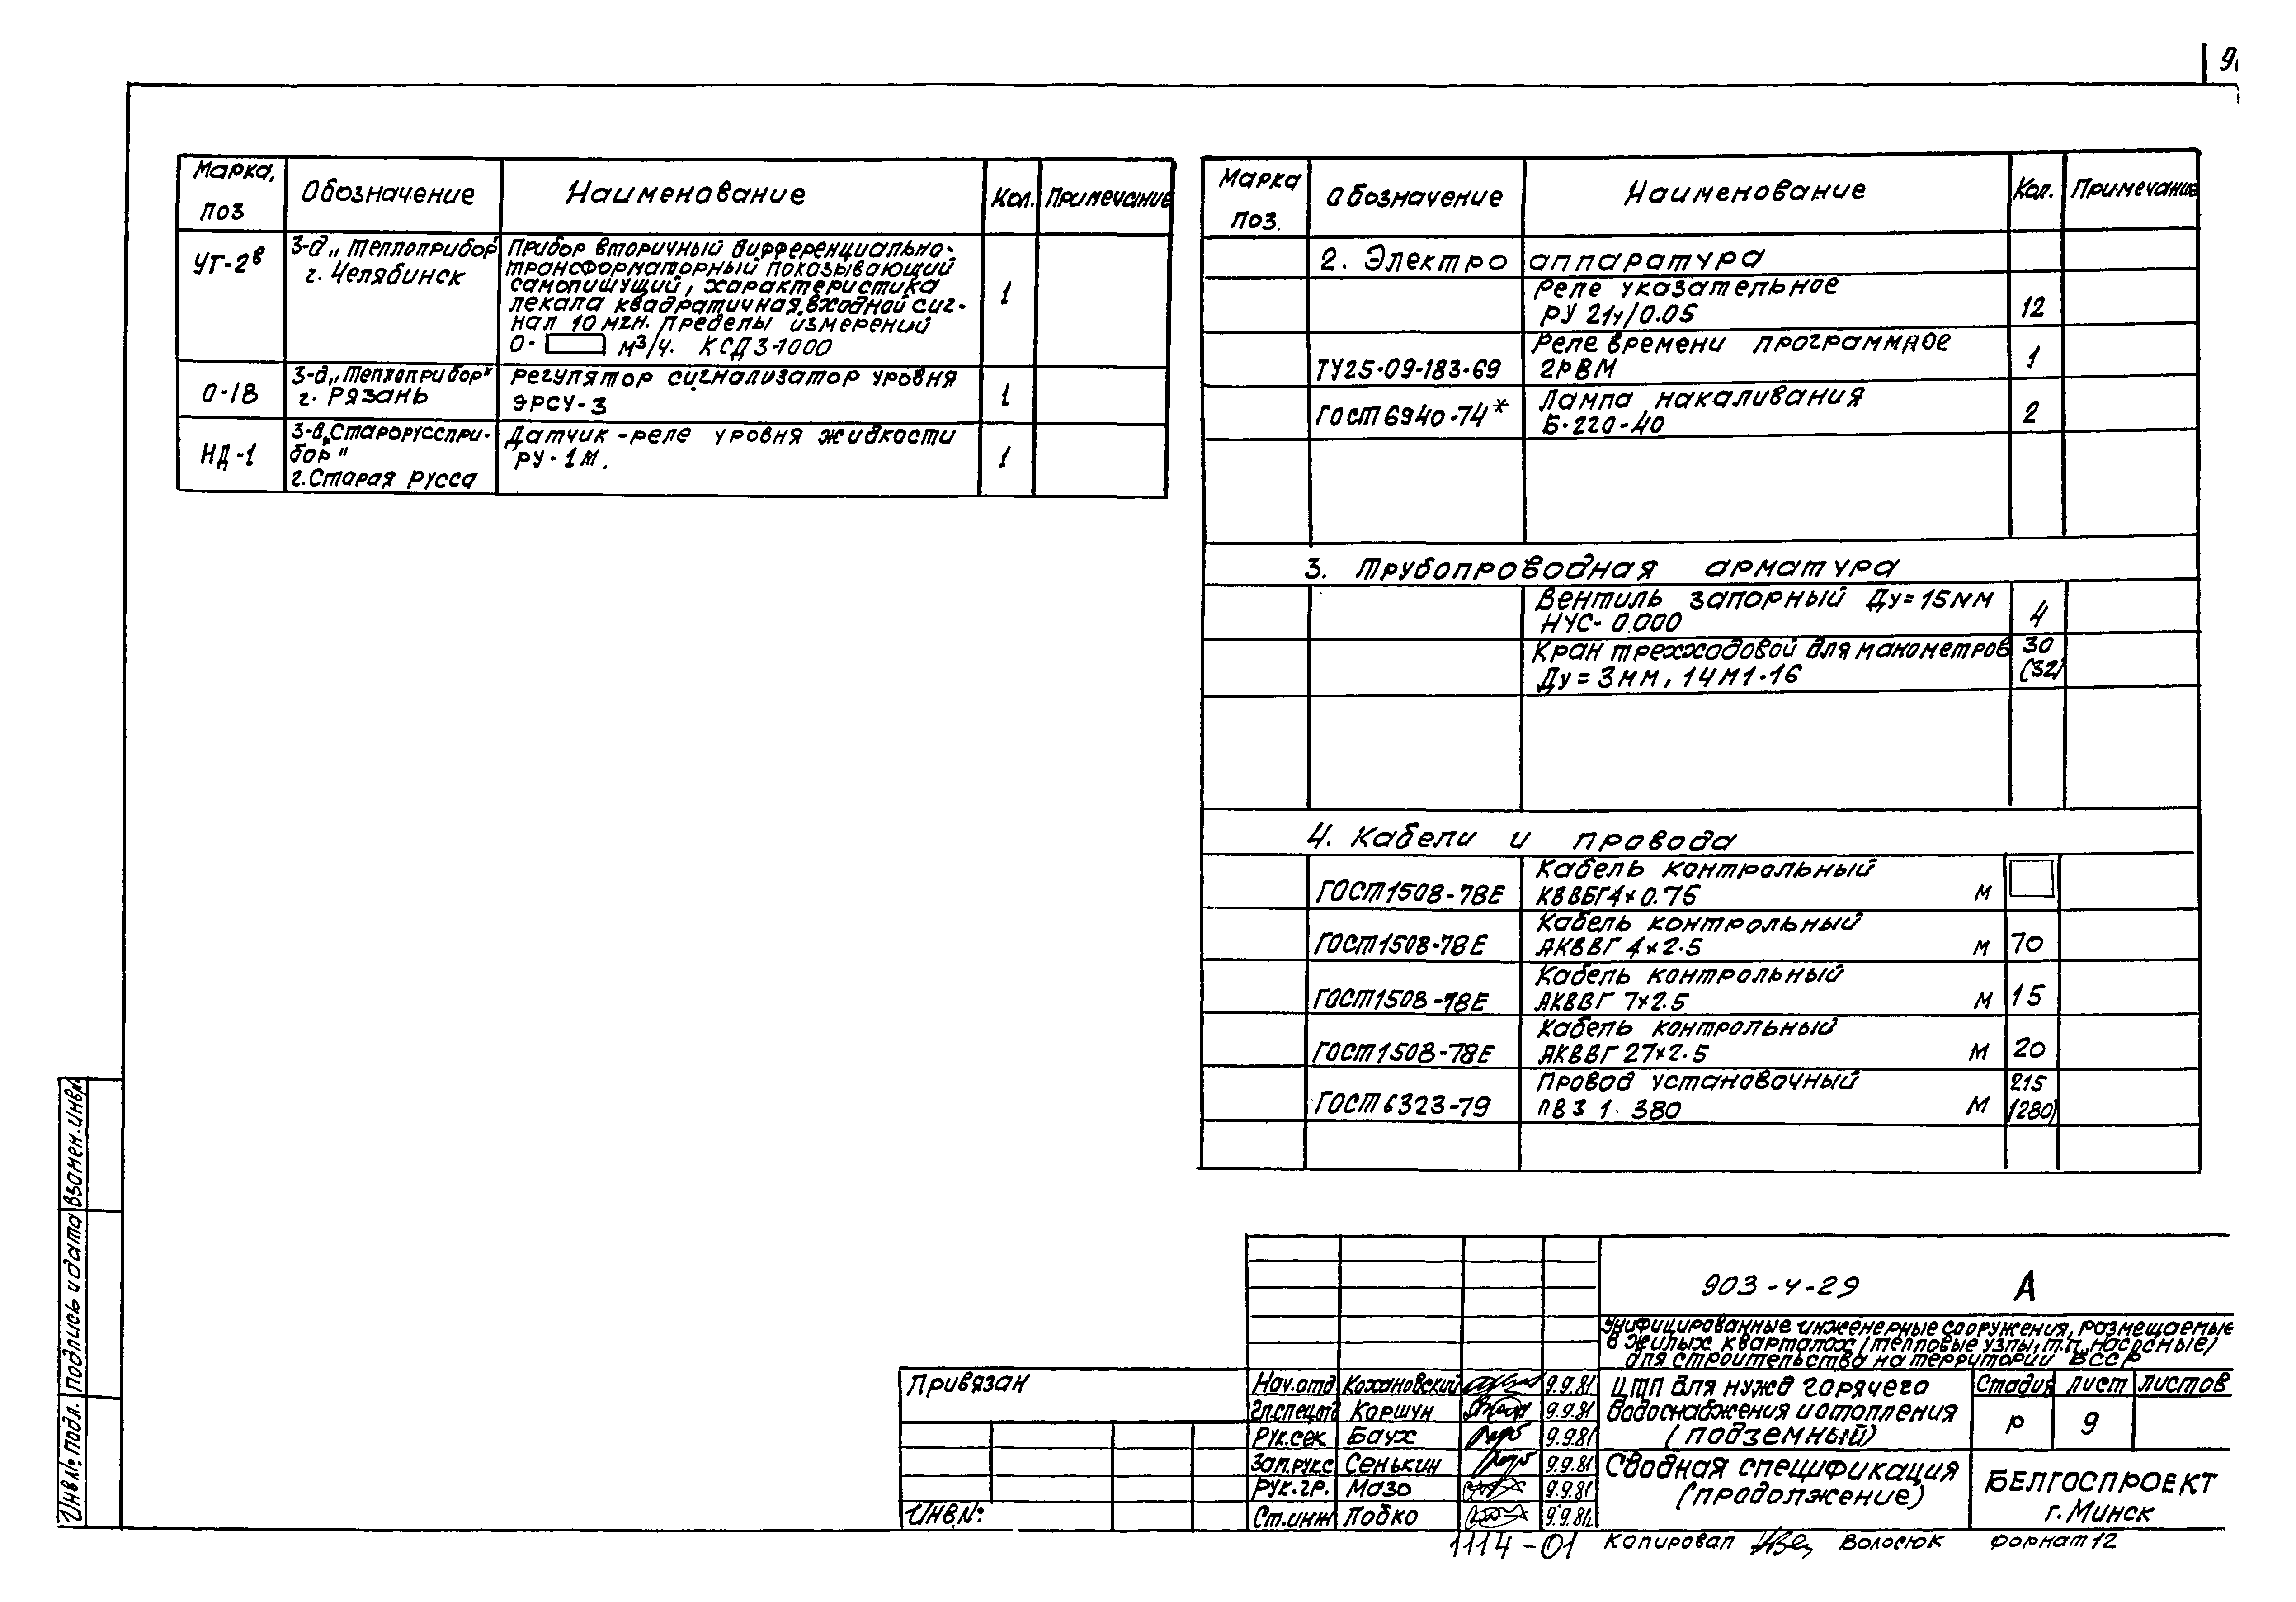 9
Марка, поз
Обозначение
Наименование
Кол.
Примечание
УТ-2в
З-д „Теплоприбор"
г. Челябинск
Прибор вторичный дифференциально-
трансформаторный показывающий
самопишущий, характеристика
лекала квадратичная, входной сиг-
нал 10 мгн. Пределы измерений
0- м3/ч. КСД3-1000
1
О-18
З-д „Теплоприбор"
г. Рязань
Регулятор сигнализатор уровня
ЭРСУ-3
1
НД-1
З-д „Старорусспри-
бор"
г. Старая Русса
Датчик-реле уровня жидкости
РУ-1М.
1
Марка
поз.
Обозначение
Наименование
Кол.
Примечание
2. Электро аппаратура
Реле указательное
РУ 21у/0.05
12
ТУ25-09-183-69
Реле времени программное
2РВМ
1
ГОСТ 6940-74*
Лампа накаливания
Б-220-40
2
3. Трубопроводная арматура
Вентиль запорный Ду=15мм
НУС-0.000
4
Кран трехходовой для манометров
Ду=3мм, 14М1-16
30
(32)
4. Кабели и провода
ГОСТ1508-78Е
Кабель контрольный
КВВБГ4×0.75 м
ГОСТ1508-78Е
Кабель контрольный
АКВВГ 4×2.5 м
70
ГОСТ1508-78Е
Кабель контрольный
АКВВГ 7×2.5 м
15
ГОСТ1508-78Е
Кабель контрольный
АКВВГ 27×2.5 м
20
ГОСТ 6323-79
Провод установочный
ПВ3 1. 380 м
215
(280)
Инв №. подл.
Подпись и дата
Взомен. инв№
903-4-29 А
Унифицированные инженерные сооружения, размещаемые
в жилых кварталах (тепловые узлы, т.п., насосные)
для строительства на территории БССР
Привязан
ИНВ.N:
Нач.отд Кохановский 9.9.81
Гл.спец.отд Коршун 9.9.81
Рук.сек. Баух 9.9.81
Зам.рук.с Сенькин 9.9.81
Рук.гр. Мазо 9.9.81
Ст.инж Лобко 9.9.81
ЦТП для нужд горячего
водоснабжения и отопления
(подземный)
Стадия Лист Листов
Р 9
Сводная спецификация
(продолжение)
БЕЛГОСПРОЕКТ
г. Минск
1114-01
Копировал Волосюк Формат 12